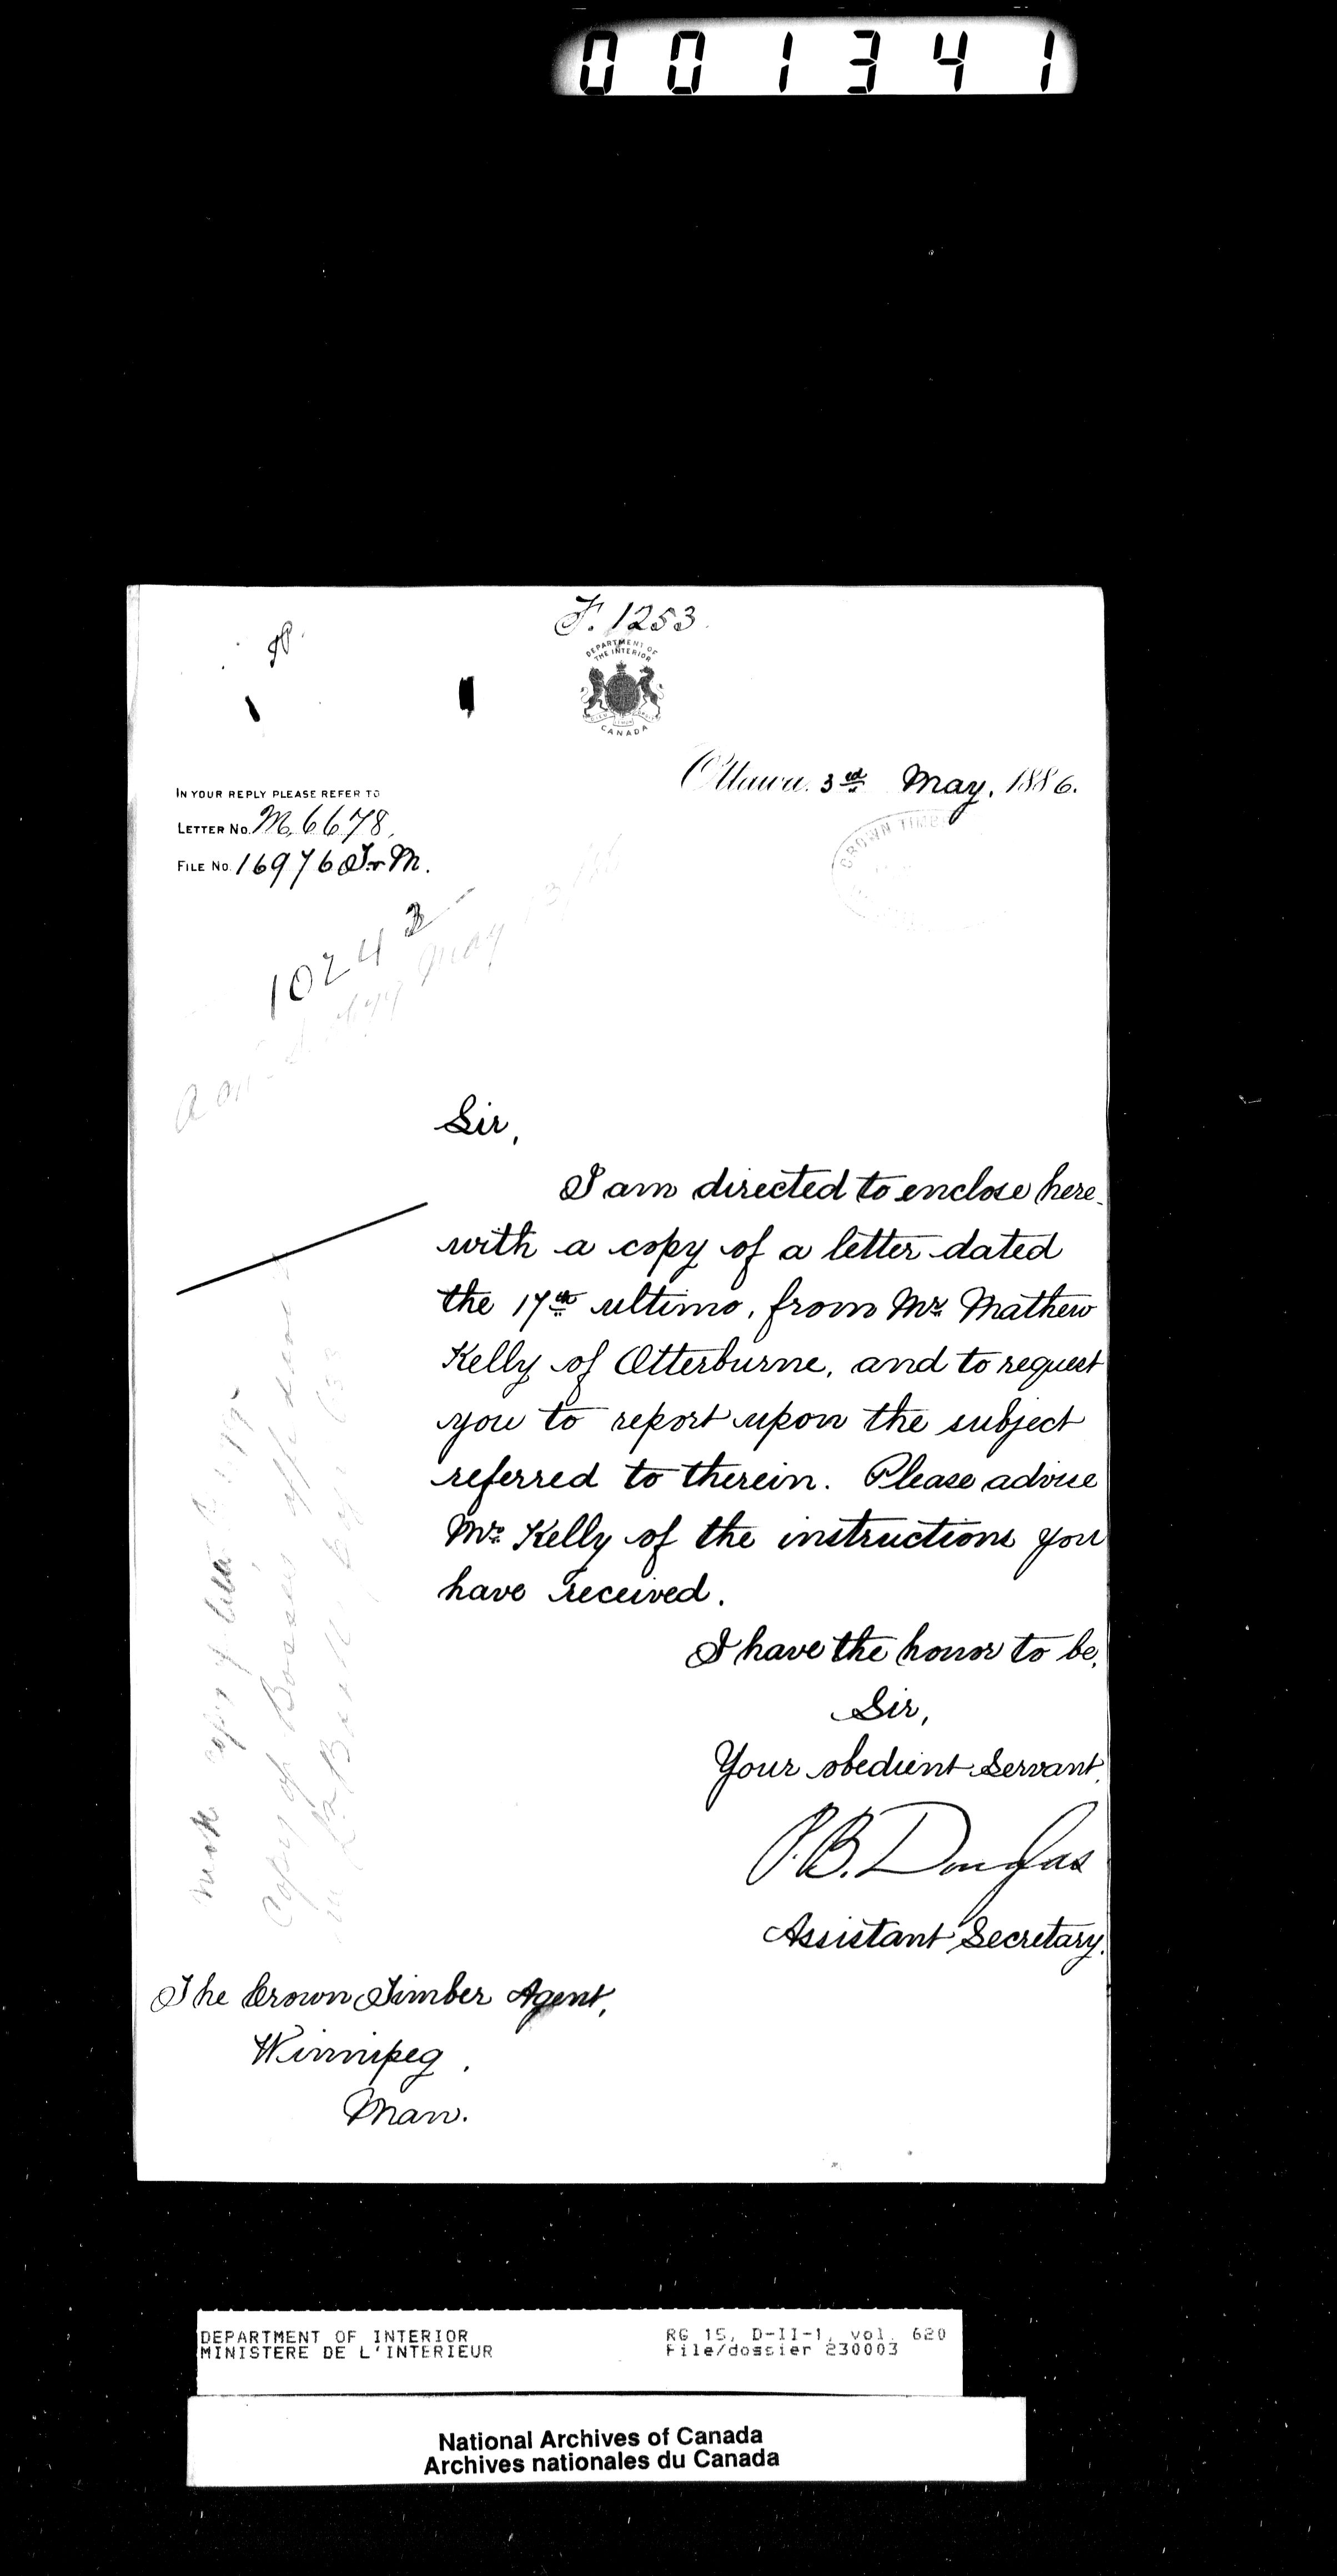 001341
F. 1253
DEPARTMENT OF
THE INTERIOR
CANADA
Ottawa. 3rd May, 1886.
IN YOUR REPLY PLEASE REFER TO
LETTER No. M, 6678,
FILE No. 16976 T&M.
CROWN TIMB
1024 2
May 13/86
Sir,
I am directed to enclose here-
with a copy of a letter dated
the 17th ultimo, from Mr. Mathew
Kelly of Otterburne, and to request
you to report upon the subject
referred to therein. Please advise
Mr. Kelly of the instructions you
have received.
I have the honor to be,
Sir,
Your obedient Servant,
P. B. Douglas
Assistant Secretary.
The Crown Timber Agent,
Winnipeg.
Man.
copy of
Copy of
DEPARTMENT OF INTERIOR RG 15, D-II-1, vol. 620
MINISTERE DE L'INTERIEUR File/dossier 230003
National Archives of Canada
Archives nationales du Canada